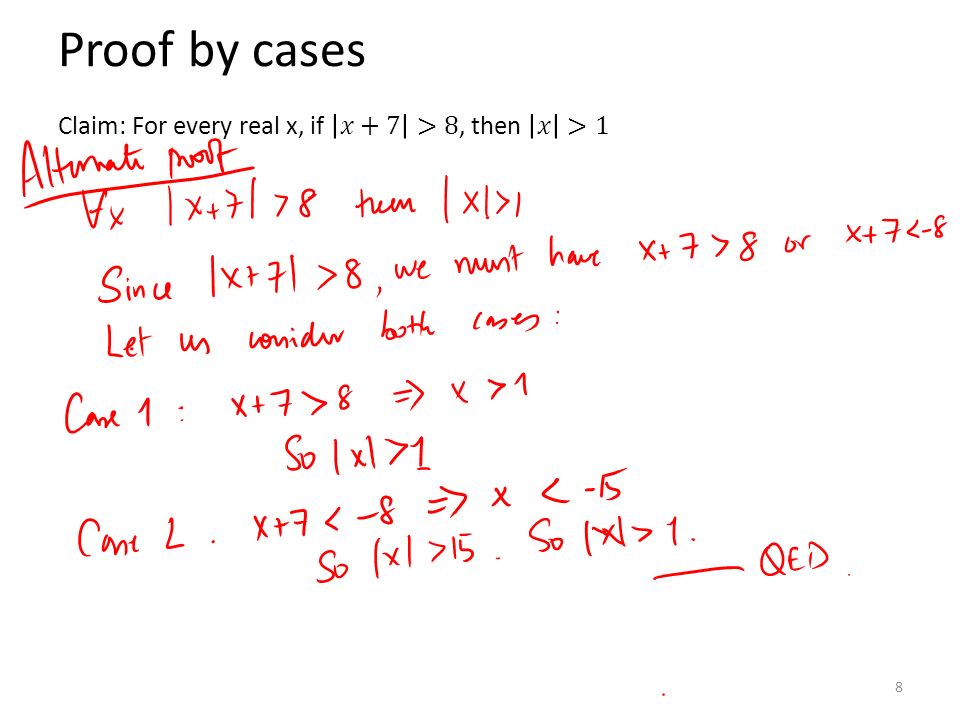 Proof by cases
Claim: For every real x, if |x + 7| > 8, then |x| > 1
Alternate proof
∀x |x+7| > 8 then |x|>1
Since |x+7| > 8, we must have x+7 > 8 or x+7<-8
Let us consider both cases:
Case 1 : x+7 > 8 => x > 1
So |x| > 1
Case 2 . x+7 < -8 => x < -15
So |x| > 15 . So |x| > 1.
QED .
8